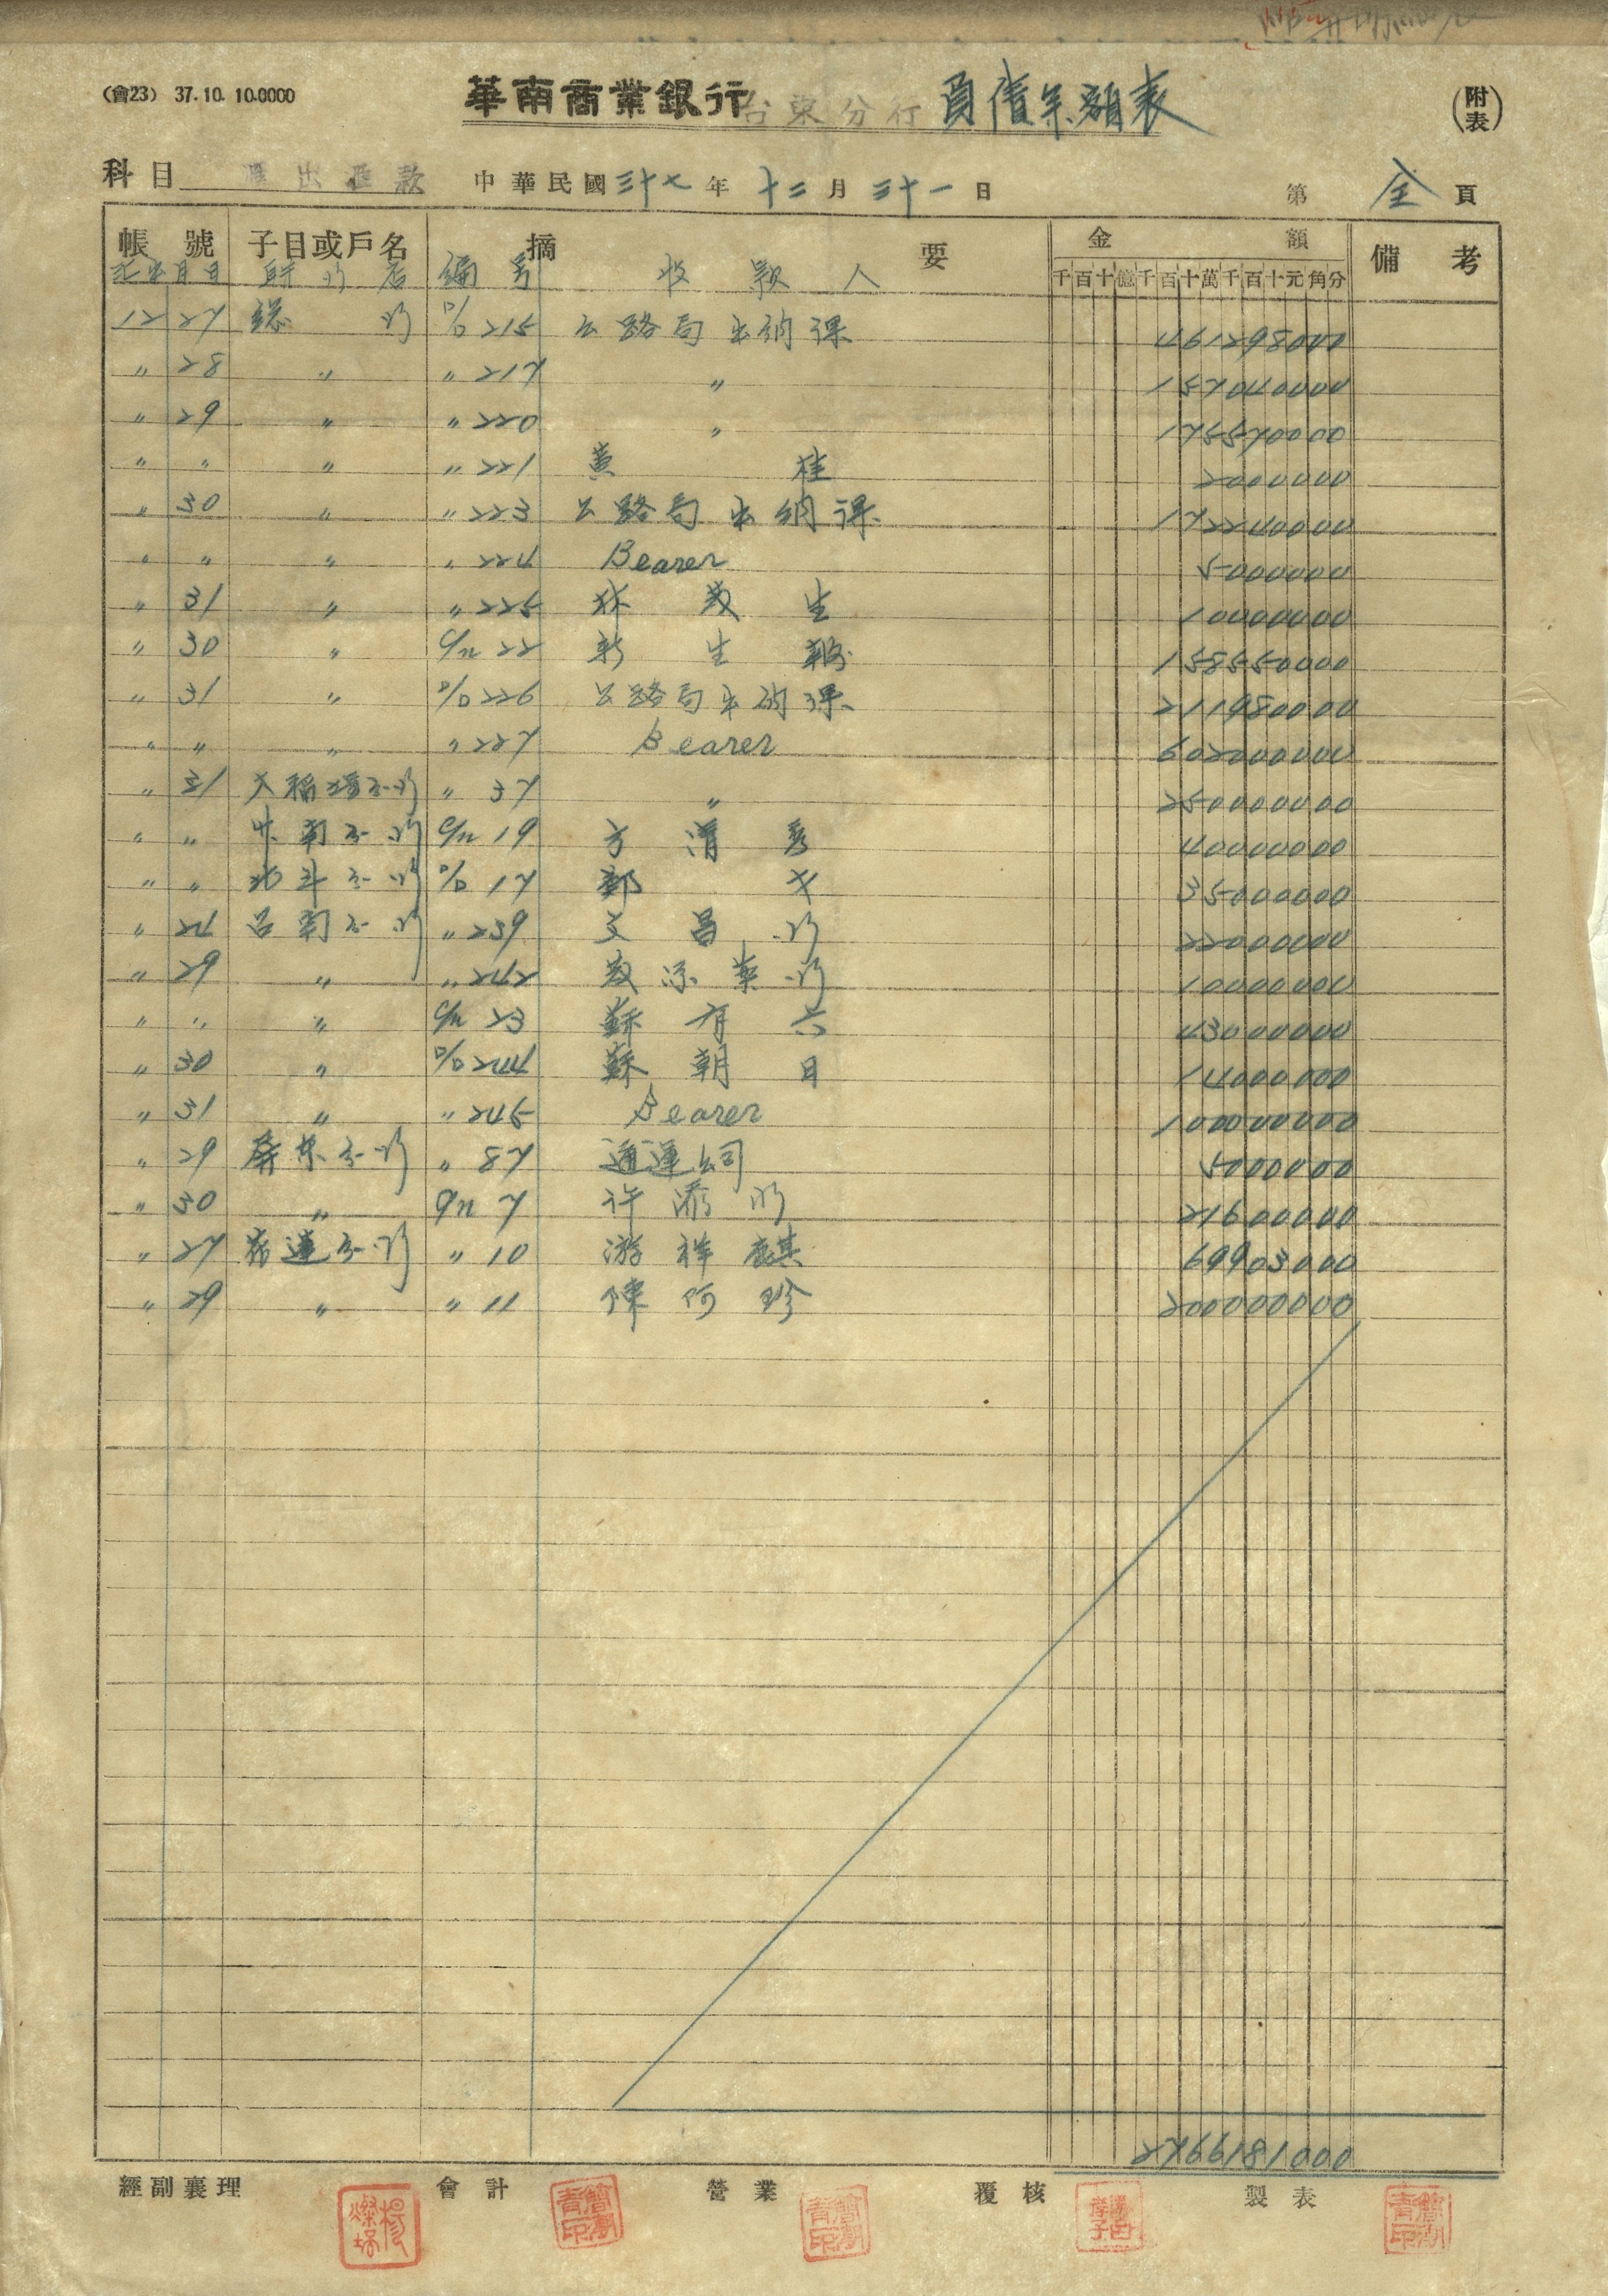 (會23) 37.10.10.0000
華南商業銀行台東分行負債余額表
(附表)
科目 匯出匯款 中華民國三十七年十二月三十一日 第全頁
帳號 子目或戶名 摘要 金額 備考
月日 店 編号 收款人 千百十億千百十萬千百十元角分
12 27 総行 D/D 215 公路局出納課 461298000
〃 28 〃 〃 217 〃 157040000
〃 29 〃 〃 220 〃 175570000
〃 〃 〃 〃 221 黃桂 2000000
〃 30 〃 〃 223 公路局出納課 172240000
〃 〃 〃 〃 224 Bearer 5000000
〃 31 〃 〃 225 林茂生 10000000
〃 30 〃 C/n 22 新生報 158550000
〃 31 〃 D/D 226 公路局出納課 211980000
〃 〃 〃 〃 227 Bearer 602000000
〃 31 大稻埕分行 〃 37 〃 250000000
〃 〃 分行 C/n 19 方清秀 40000000
〃 〃 北斗分行 D/D 17 鄭 35000000
〃 24 台南分行 〃 239 文昌行 22000000
〃 29 〃 〃 242 茂源薬行 10000000
〃 〃 〃 C/n 23 蘇有六 43000000
〃 30 〃 D/D 244 蘇朝日 14000000
〃 31 〃 〃 245 Bearer 100000000
〃 29 屏東分行 〃 87 通運公司 5000000
〃 30 〃 C/n 7 許添 21600000
〃 27 花蓮分行 〃 10 游祥麒 69903000
〃 29 〃 〃 11 陳阿珍 200000000
2766181000
經副襄理 會計 營業 覆核 製表